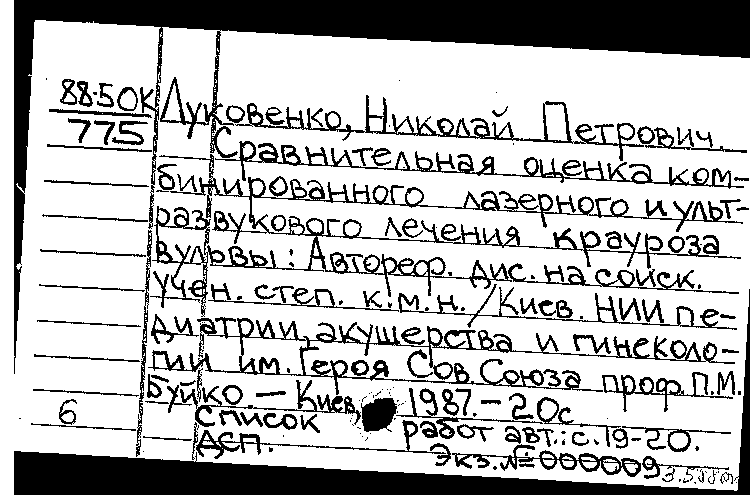 88-5 ОК
775
Луковенко, Николай Петрович.
Сравнительная оценка ком-
бинированного лазерного и ульт-
развукового лечения крауроза
вульвы: Автореф. дис. на соиск.
учен. степ. к.м.н. / Киев. НИИ пе-
диатрии, акушерства и гинеколо-
гии им. Героя Сов. Союза проф. П.М.
Буйко — Киев, 1987. – 20с
6
Список работ авт.: с. 19-20.
ДСП. Экз. № 000009